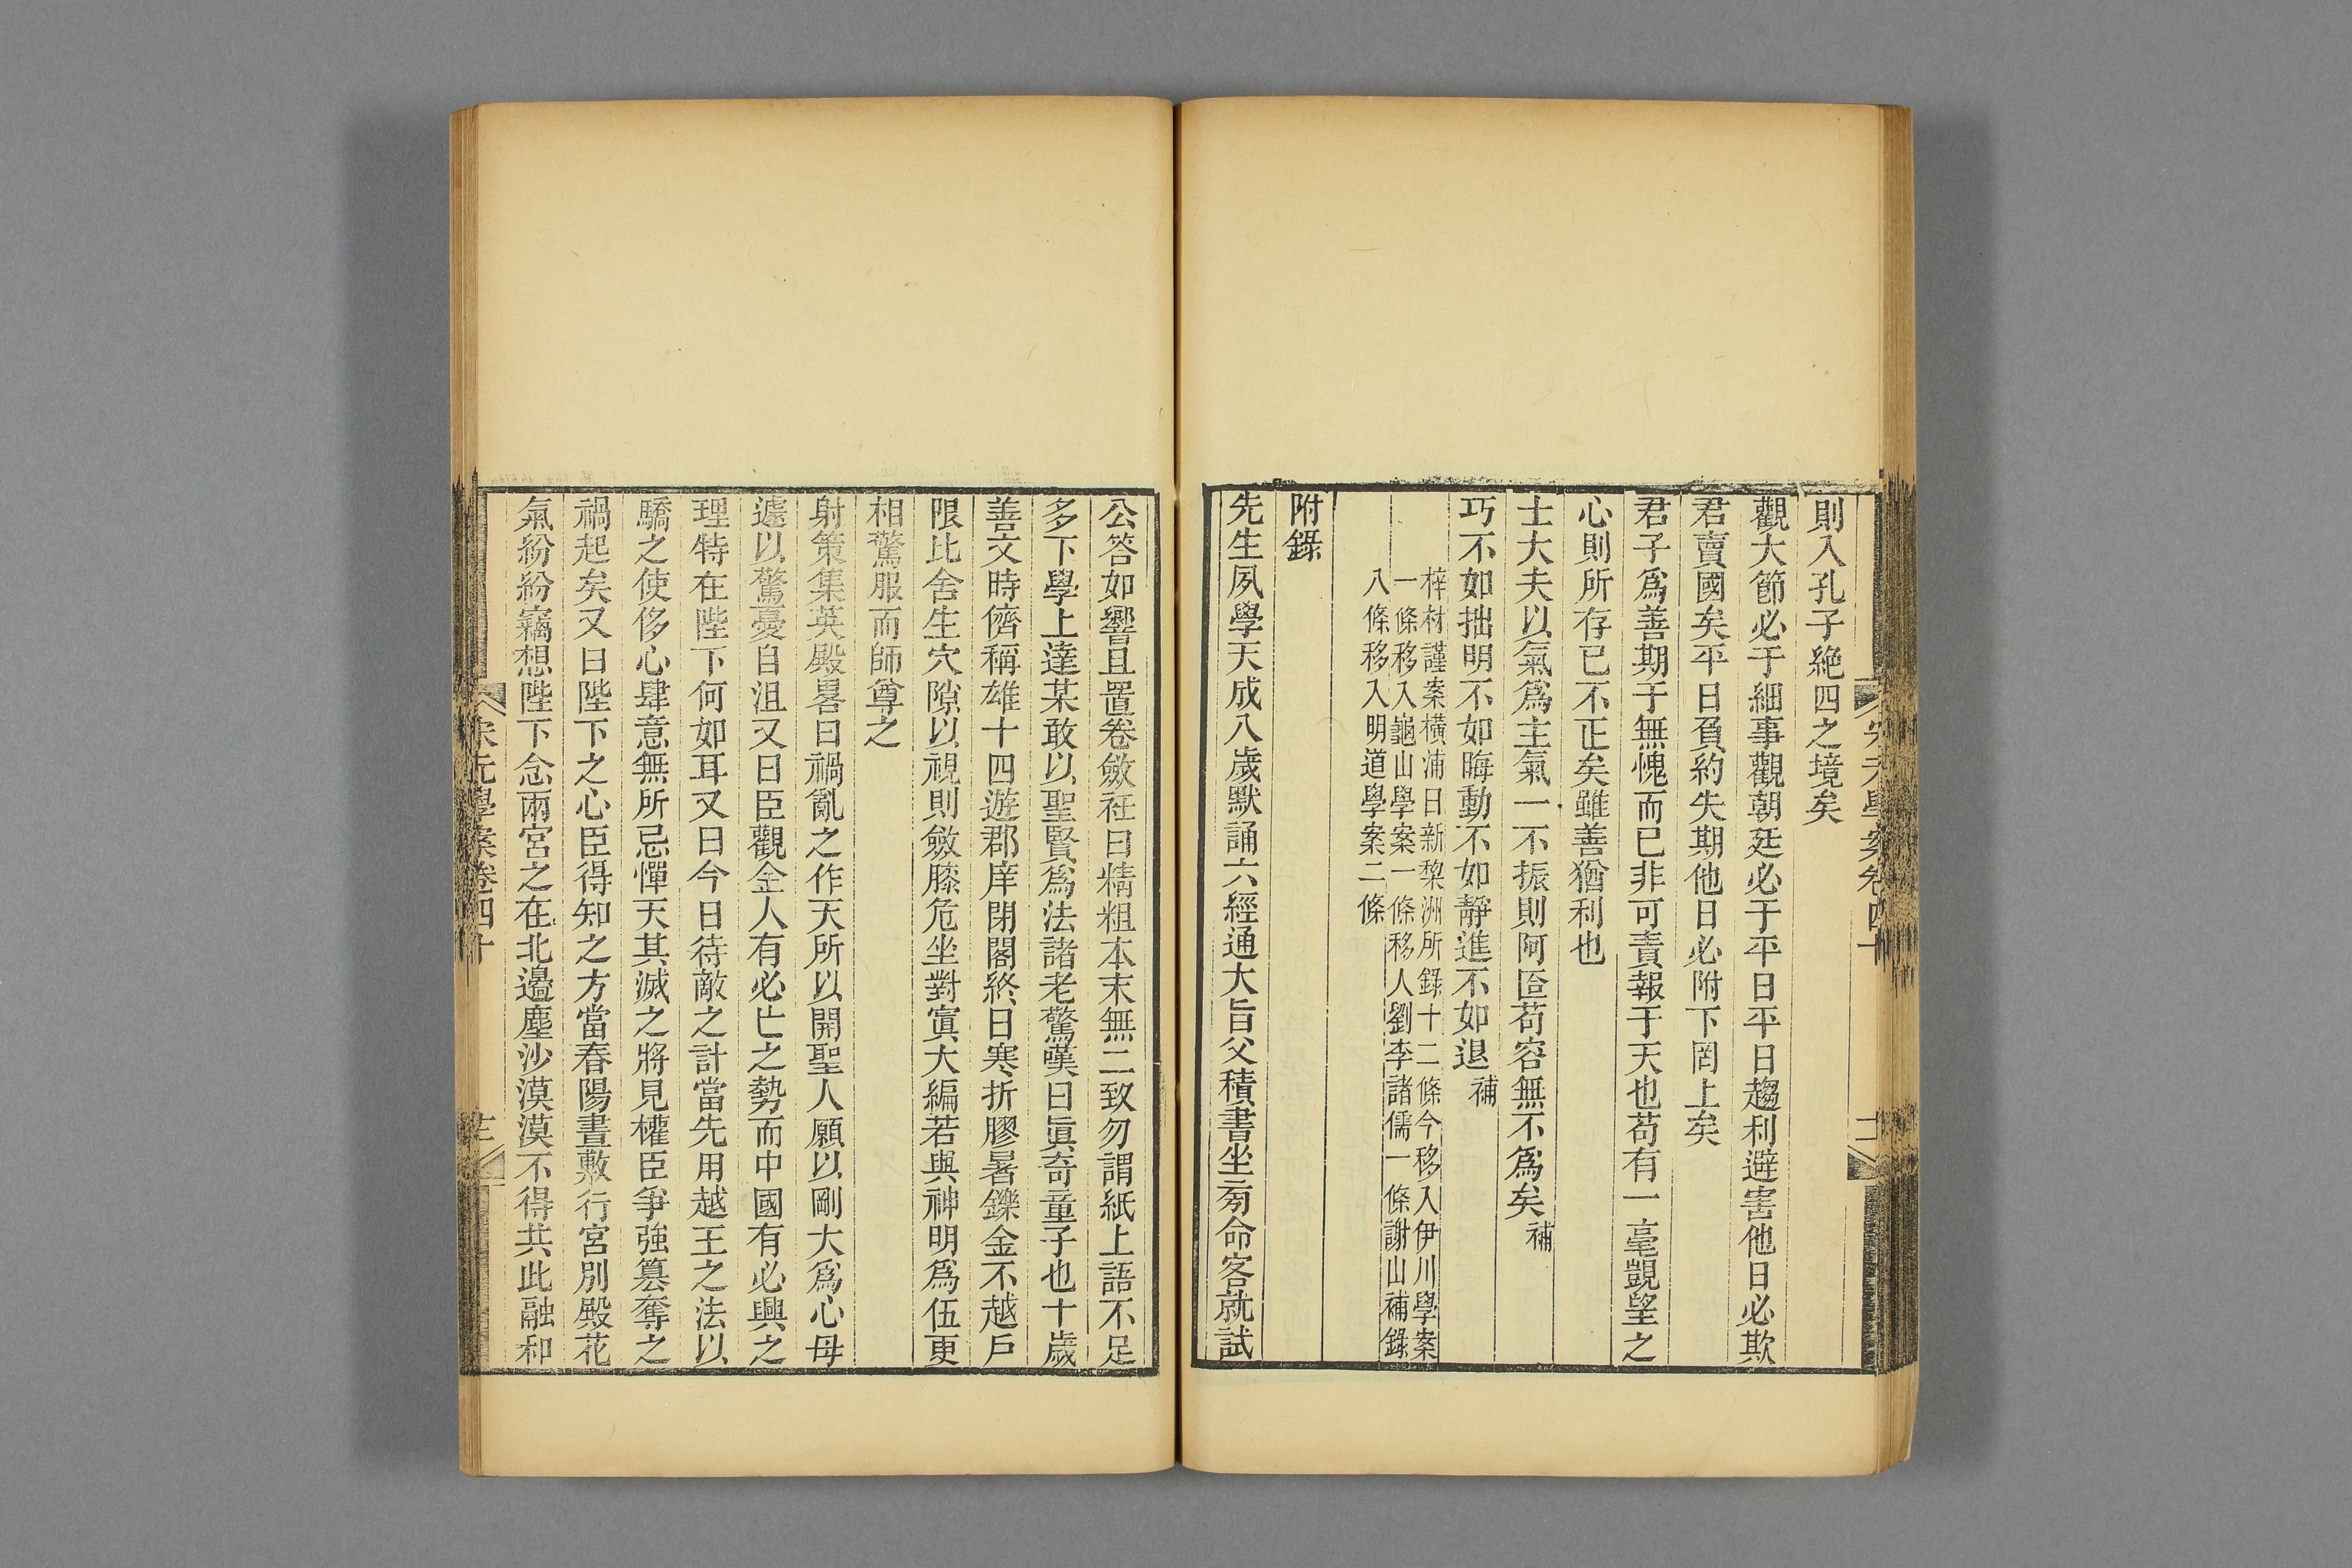 則入孔子絶四之境矣
觀大節必于細事觀朝廷必于平日平日趨利避害他日必欺
君賣國矣平日負約失期他日必附下罔上矣
君子爲善期于無愧而已非可責報于天也苟有一毫覬望之
心則所存已不正矣雖善猶利也
士大夫以氣爲主氣一不振則阿匼苟容無不爲矣補
巧不如拙明不如晦動不如靜進不如退補
梓材謹案橫浦日新棃洲所錄十二條今移入伊川學案
一條移入龜山學案一條移入劉李諸儒一條謝山補錄
八條移入明道學案二條
附錄
先生夙學天成八歲默誦六經通大旨父積書坐旁命客就試
公答如響且置卷斂衽曰精粗本末無二致勿謂紙上語不足
多下學上達某敢以聖賢爲法諸老驚嘆曰眞奇童子也十歲
善文時儕稱雄十四遊郡庠閉閣終日寒折膠暑鑠金不越戶
限比舍生穴隙以視則斂膝危坐對寘大編若與神明爲伍更
相驚服而師尊之
射策集英殿畧曰禍亂之作天所以開聖人願以剛大爲心毋
遽以驚憂自沮又曰臣觀金人有必亡之勢而中國有必興之
理特在陛下何如耳又曰今日待敵之計當先用越王之法以
驕之使侈心肆意無所忌憚天其滅之將見權臣爭強篡奪之
禍起矣又曰陛下之心臣得知之方當春陽晝敷行宮別殿花
氣紛紛竊想陛下念兩宮之在北邊塵沙漠漠不得共此融和
宋元學案卷四十